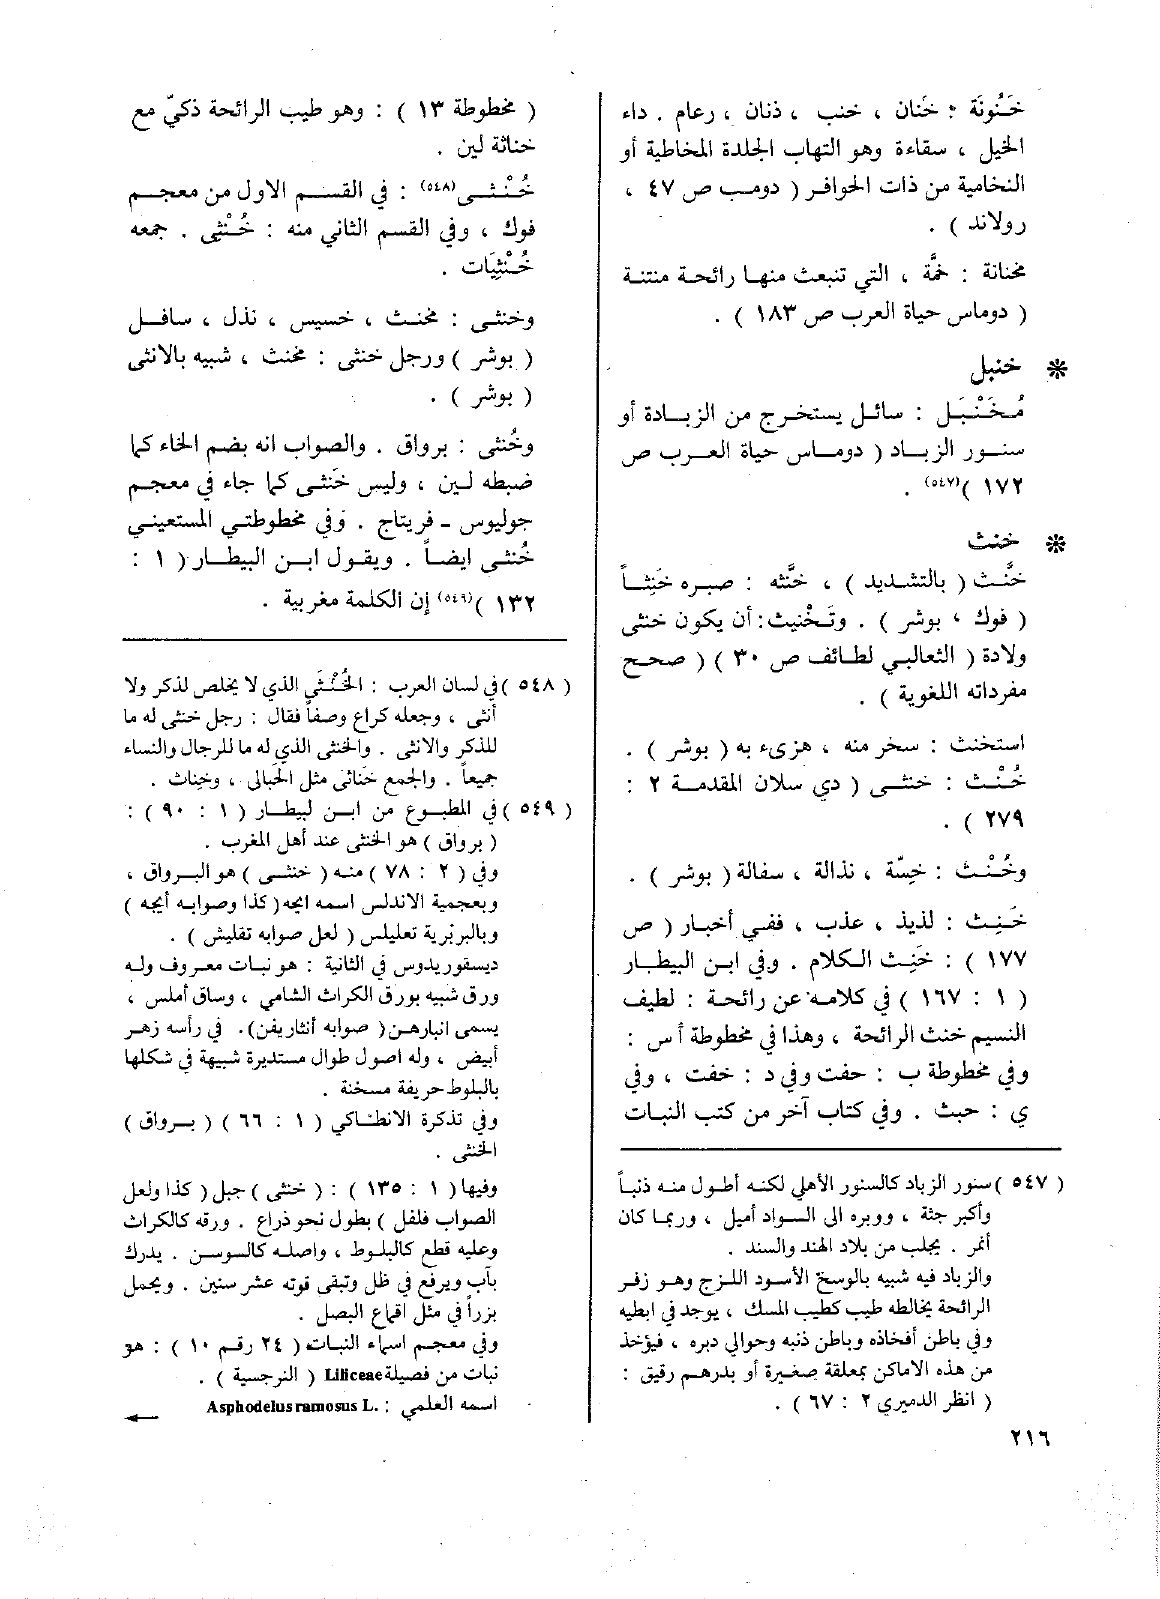 خَنُونَة : خَنان ، خنب ، ذنان ، رعام . داء
الخيل ، سقاءة وهو التهاب الجلدة المخاطية أو
النخامية من ذات الحوافر ( دومب ص ٤٧ ،
رولاند ) .
مخنانة : خَمَّة ، التي تنبعث منها رائحة منتنة
( دوماس حياة العرب ص ١٨٣ ) .
* خنبل
مُخَنْبَل : سائل يستخرج من الزبادة أو
سنور الزباد ( دوماس حياة العرب ص
١٧٢ )(٥٤٧) .
* خنث
خنَّث ( بالتشديد ) ، خنَّثه : صبره خَنِثاً
( فوك ، بوشر ) . وتَخْنيث : أن يكون خنثى
ولادة ( الثعالبي لطائف ص ٣٠ ) ( صحح
مفرداته اللغوية ) .
استخنث : سخر منه ، هزىء به ( بوشر ) .
خُنْث : خنثى ( دي سلان المقدمة ٢ :
٢٧٩ ) .
وخُنْث : خسّة ، نذالة ، سفالة ( بوشر ) .
خَنِث : لذيذ ، عذب ، ففي أخبار ( ص
١٧٧ ) : خَنِث الكلام . وفي ابن البيطار
( ١ : ١٦٧ ) في كلامه عن رائحة : لطيف
النسيم خنث الرائحة ، وهذا في مخطوطة أ س :
وفي مخطوطة ب : حفت وفي د : خفت ، وفي
ي : حبث . وفي كتاب آخر من كتب النبات
( ٥٤٧ ) سنور الزباد كالسنور الأهلي لكنه أطول منه ذنباً
وأكبر جثة ، ووبره الى السواد أميل ، وربما كان
أنمر . يجلب من بلاد الهند والسند .
والزباد فيه شبيه بالوسخ الأسود اللزج وهو زفر
الرائحة يخالطه طيب كطيب المسك ، يوجد في ابطيه
وفي باطن أفخاذه وباطن ذنبه وحوالي دبره ، فيؤخذ
من هذه الاماكن بمعلقة صغيرة أو بدرهم رقيق :
( انظر الدميري ٢ : ٦٧ ) .
٢١٦
( مخطوطة ١٣ ) : وهو طيب الرائحة ذكيّ مع
خناثة لين .
خُنْثى(٥٤٨) : في القسم الاول من معجم
فوك ، وفي القسم الثاني منه : خُنْثِى . جمعه
خُنْثِيَات .
وخنثى : مخنث ، خسيس ، نذل ، سافل
( بوشر ) ورجل خنثى : مخنث ، شبيه بالانثى
( بوشر ) .
وخُنثى : برواق . والصواب انه بضم الخاء كما
ضبطه لين ، وليس خَنثى كما جاء في معجم
جوليوس - فريتاج . وفي مخطوطتي المستعيني
خُنثى ايضاً . ويقول ابن البيطار ( ١ :
١٣٢ )(٥٤٩) إن الكلمة مغربية .
( ٥٤٨ ) في لسان العرب : الخُنْثَى الذي لا يخلص لذكر ولا
أنثى ، وجعله كراع وصفاً فقال : رجل خنثى له ما
للذكر والانثى . والخنثى الذي له ما للرجال والنساء
جميعاً . والجمع خَناثى مثل الحَبالى ، وخِناث .
( ٥٤٩ ) في المطبوع من ابن لبيطار ( ١ : ٩٠ ) :
( برواق ) هو الخنثى عند أهل المغرب .
وفي ( ٢ : ٧٨ ) منه ( خنثى ) هو البرواق ،
وبعجمية الاندلس اسمه ايجه ( كذا وصوابه أيجه )
وبالبربرية تعليلس ( لعل صوابه تقليش ) .
ديسقوريدوس في الثانية : هو نبات معروف وله
ورق شبيه بورق الكراث الشامي ، وساق أملس ،
يسمى انبارهن ( صوابه أنثاريفن ) . في رأسه زهر
أبيض ، وله اصول طوال مستديرة شبيهة في شكلها
بالبلوط حريفة مسخنة .
وفي تذكرة الانطاكي ( ١ : ٦٦ ) ( برواق )
الخنثى .
وفيها ( ١ : ١٣٥ ) : ( خنثى ) جبل ( كذا ولعل
الصواب فلفل ) بطول نحو ذراع . ورقه كالكراث
وعليه قطع كالبلوط ، واصله كالسوسن . يدرك
بآب ويرفع في ظل وتبقى قوته عشر سنين . ويحمل
بزراً في مثل اقماع البصل .
وفي معجم اسماء النبات ( ٢٤ رقم ١٠ ) : هو
نبات من فصيلة Liliceae ( النرجسية ) .
اسمه العلمي : Asphodelus ramosus L.